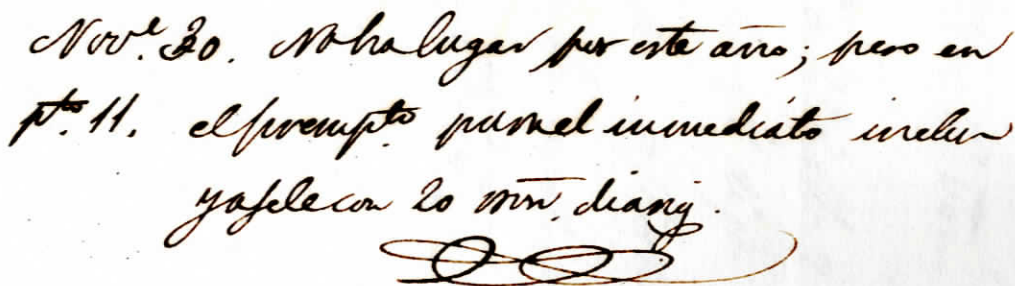 Nov.e 30. No ha lugar por este año; pero en
pto. 11. el presupto. para el inmediáto inclu
yasele con 20 mrn. diarios.